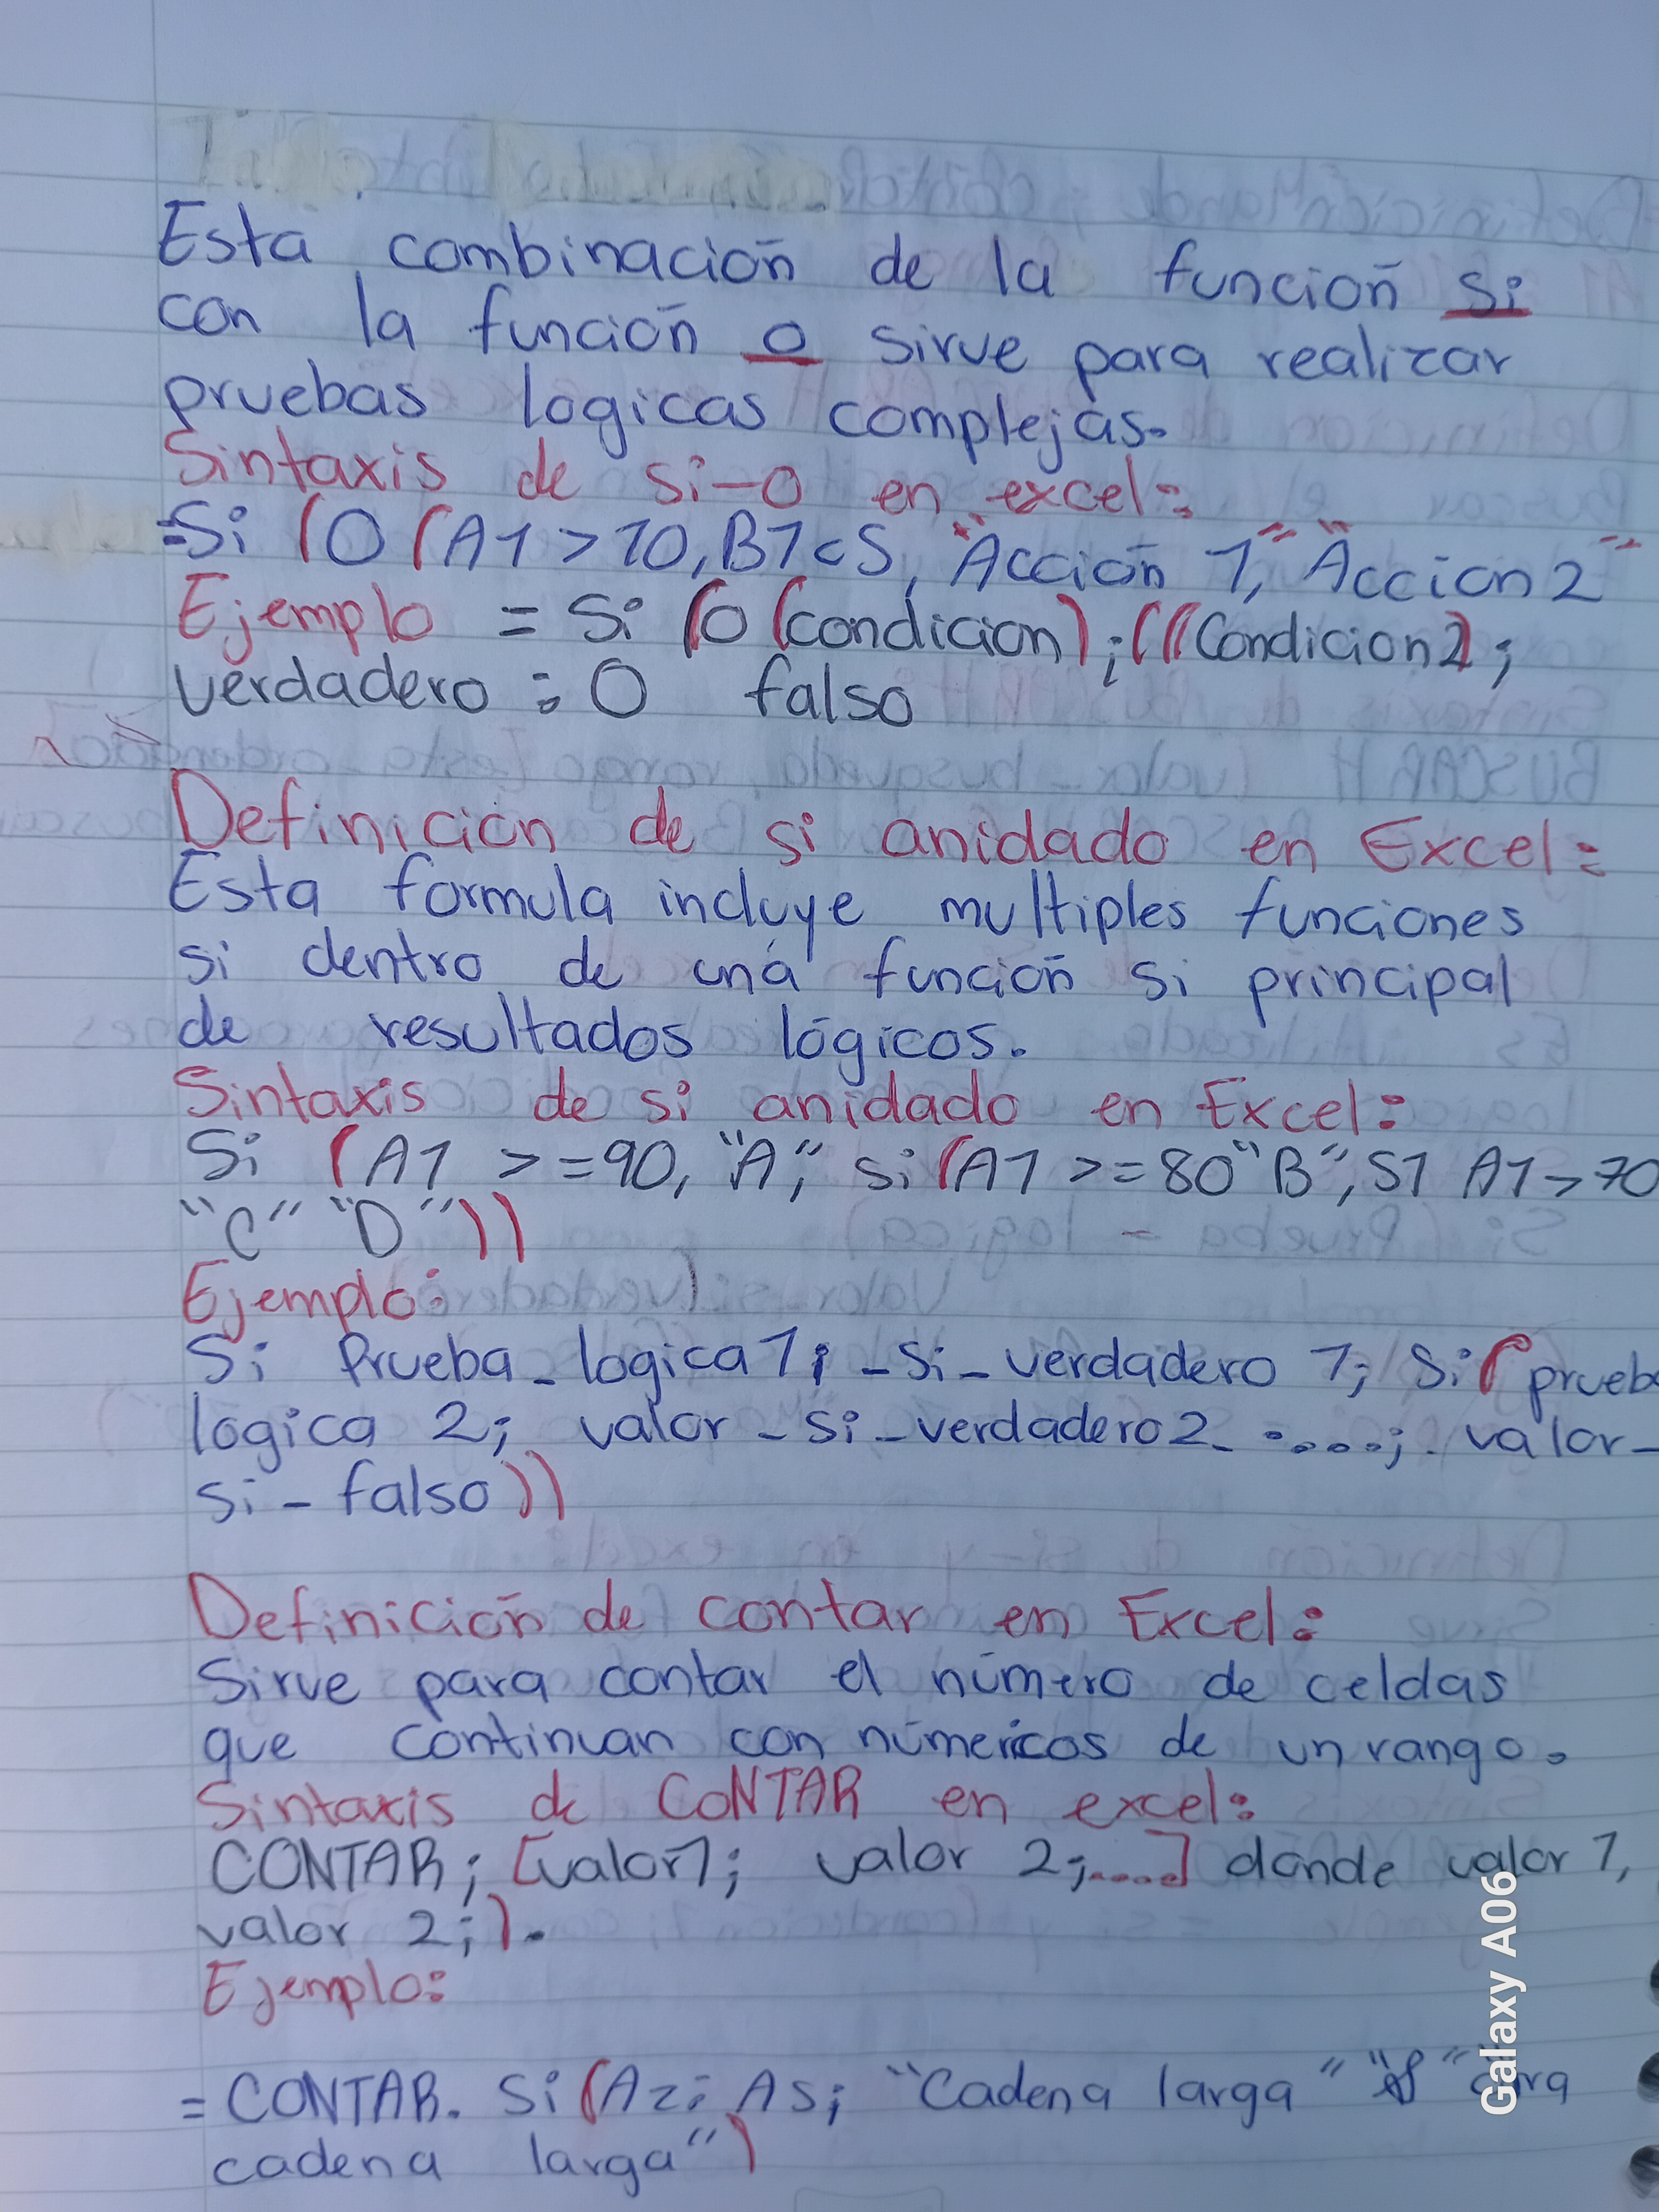 Esta combinación de la función Si
con la función O sirve para realizar
pruebas logicas complejas.
Sintaxis de si-O en excel:
=Si (O (A1 > 10, B1 < S, "Acción 1," "Accion 2"
Ejemplo = Si (O (condicion); ((Condicion2);
verdadero : O falso
Definición de si anidado en Excel:
Esta formula incluye multiples funciones
si dentro de una función si principal
de resultados lógicos.
Sintaxis de si anidado en Excel:
Si (A1 >=90, "A", si (A1 >=80 "B", S1 A1 > 70
"C" "D"))
Ejemplo:
Si Prueba_logica 1; -Si_verdadero 1; Si( prueb
lógica 2; valor_si_verdadero2_ ....; valor_
si_falso))
Definición de contar en Excel:
Sirve para contar el número de celdas
que continuan con númericos de un rango.
Sintaxis de CONTAR en excel:
CONTAR; [valor1; valor 2;....] donde valor 1,
valor 2;).
Ejemplo:
= CONTAR. Si(A2: A5; "Cadena larga"
cadena larga")
Galaxy A06